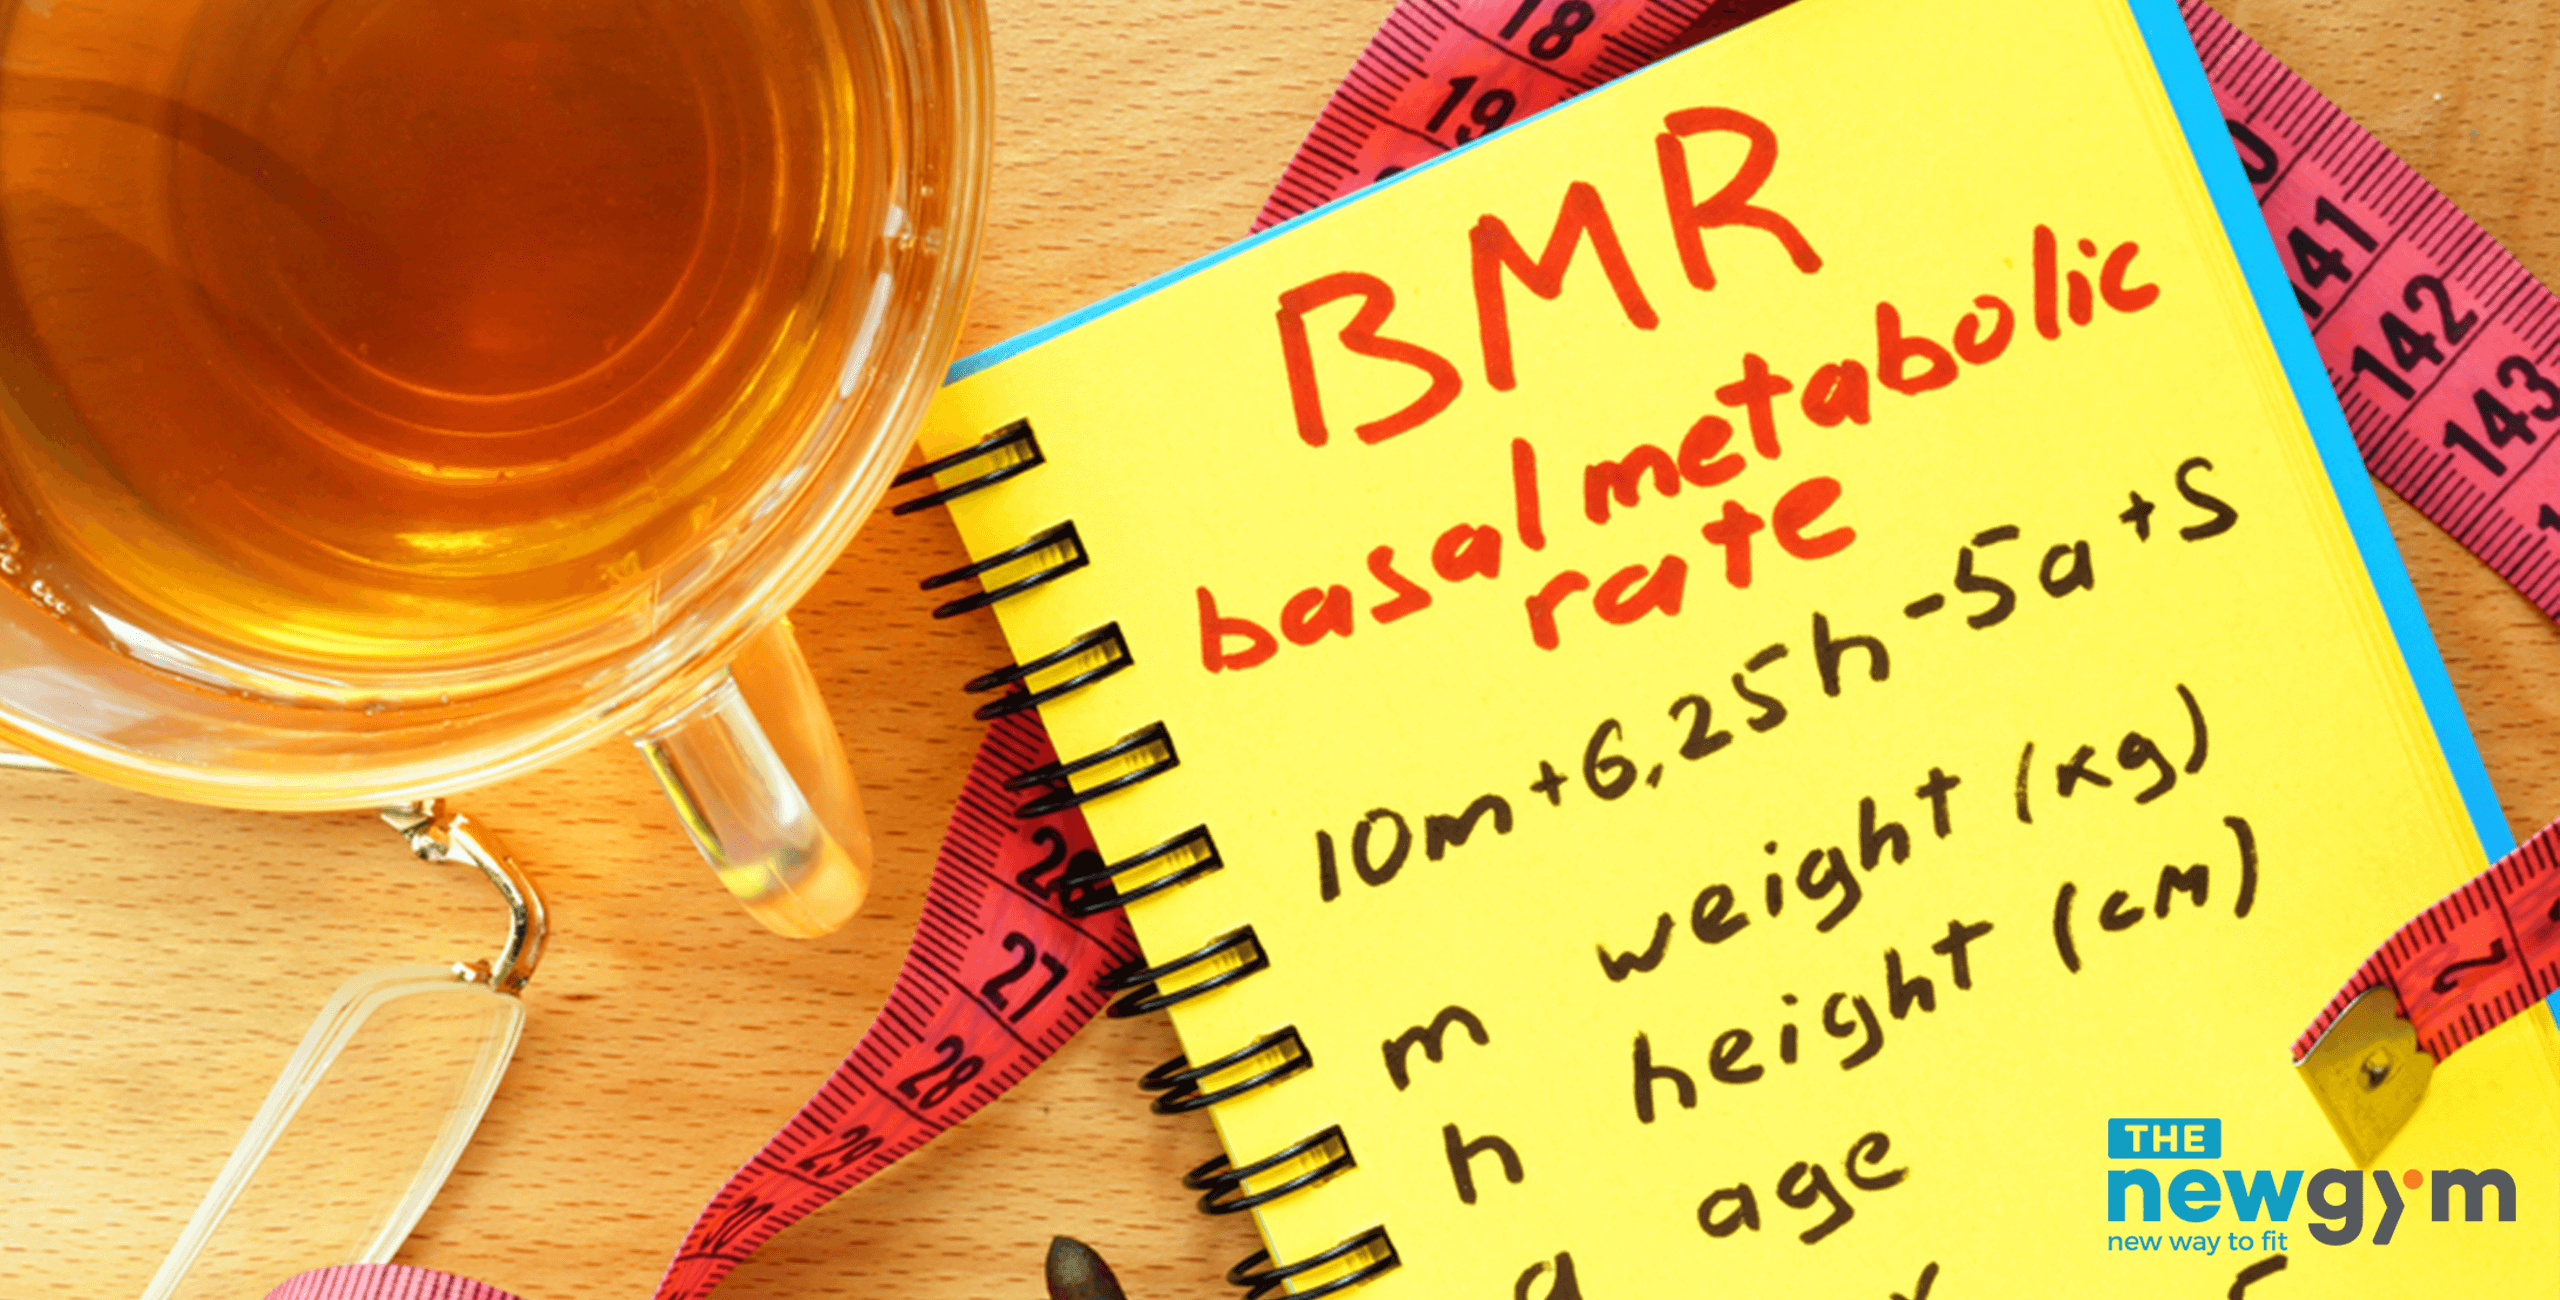 BMR
basal metabolic
rate
10m+6,25h-5a+s
m weight (kg)
h height (cm)
a age
18
19
141
142
143
26
27
28
29
30
2
THE
newgym
new way to fit